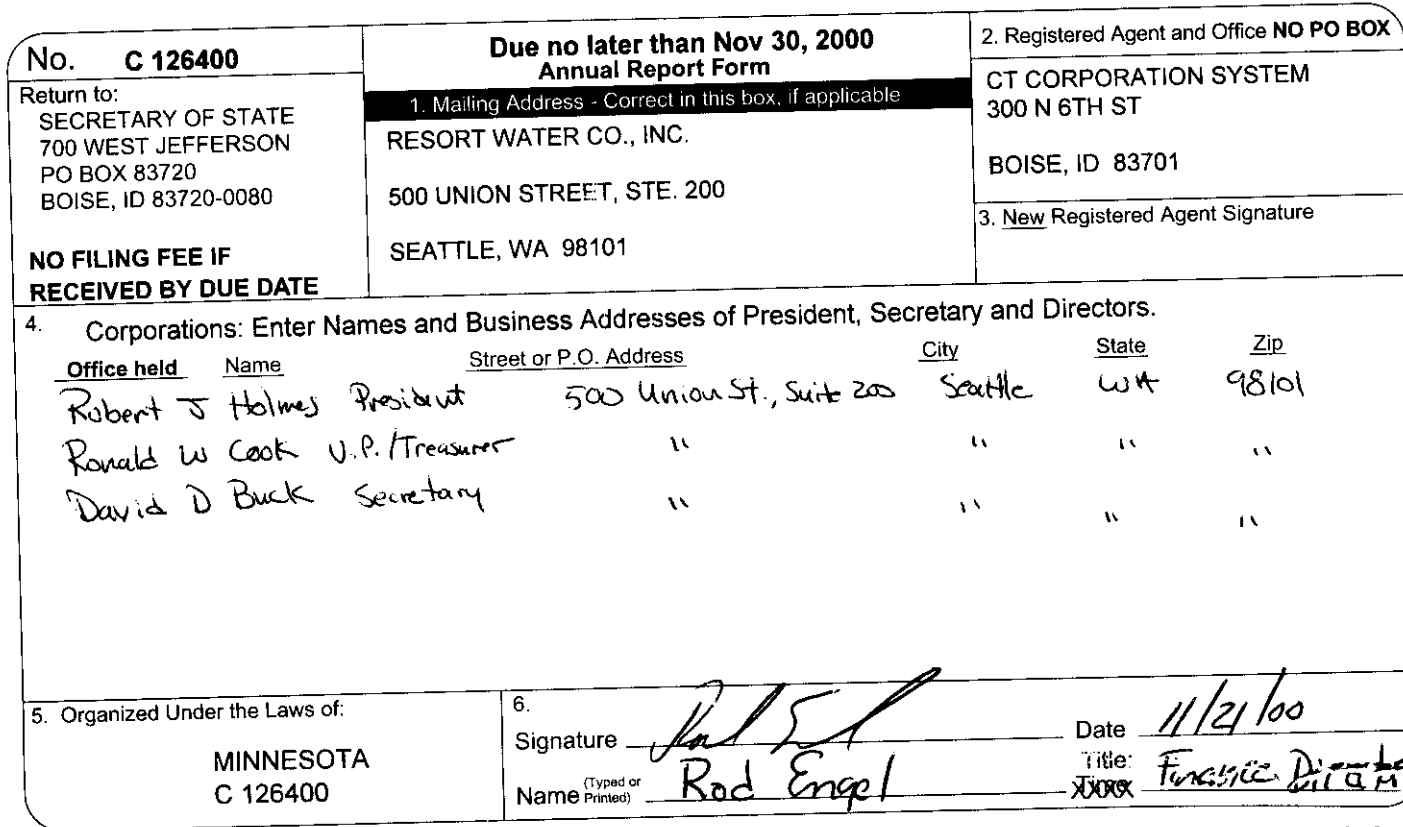 No. C 126400
Return to:
SECRETARY OF STATE
700 WEST JEFFERSON
PO BOX 83720
BOISE, ID 83720-0080
NO FILING FEE IF
RECEIVED BY DUE DATE
Due no later than Nov 30, 2000
Annual Report Form
1. Mailing Address - Correct in this box, if applicable
RESORT WATER CO., INC.
500 UNION STREET, STE. 200
SEATTLE, WA 98101
2. Registered Agent and Office NO PO BOX
CT CORPORATION SYSTEM
300 N 6TH ST
BOISE, ID 83701
3. New Registered Agent Signature
4. Corporations: Enter Names and Business Addresses of President, Secretary and Directors.
Office held Name Street or P.O. Address City State Zip
Robert J Holmes President 500 Union St., Suite 200 Seattle WA 98101
Ronald W Cook V.P./Treasurer " " " "
David D Buck Secretary " " " "
5. Organized Under the Laws of:
MINNESOTA
C 126400
6.
Signature Date 11/21/00
Name (Typed or Printed) Rod Engel Title: Finance